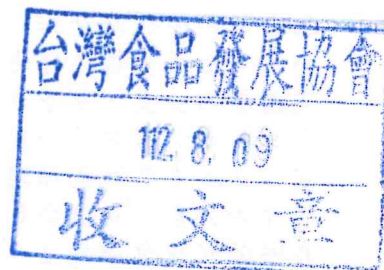 台灣食品發展協會
112. 8. 09
收文章